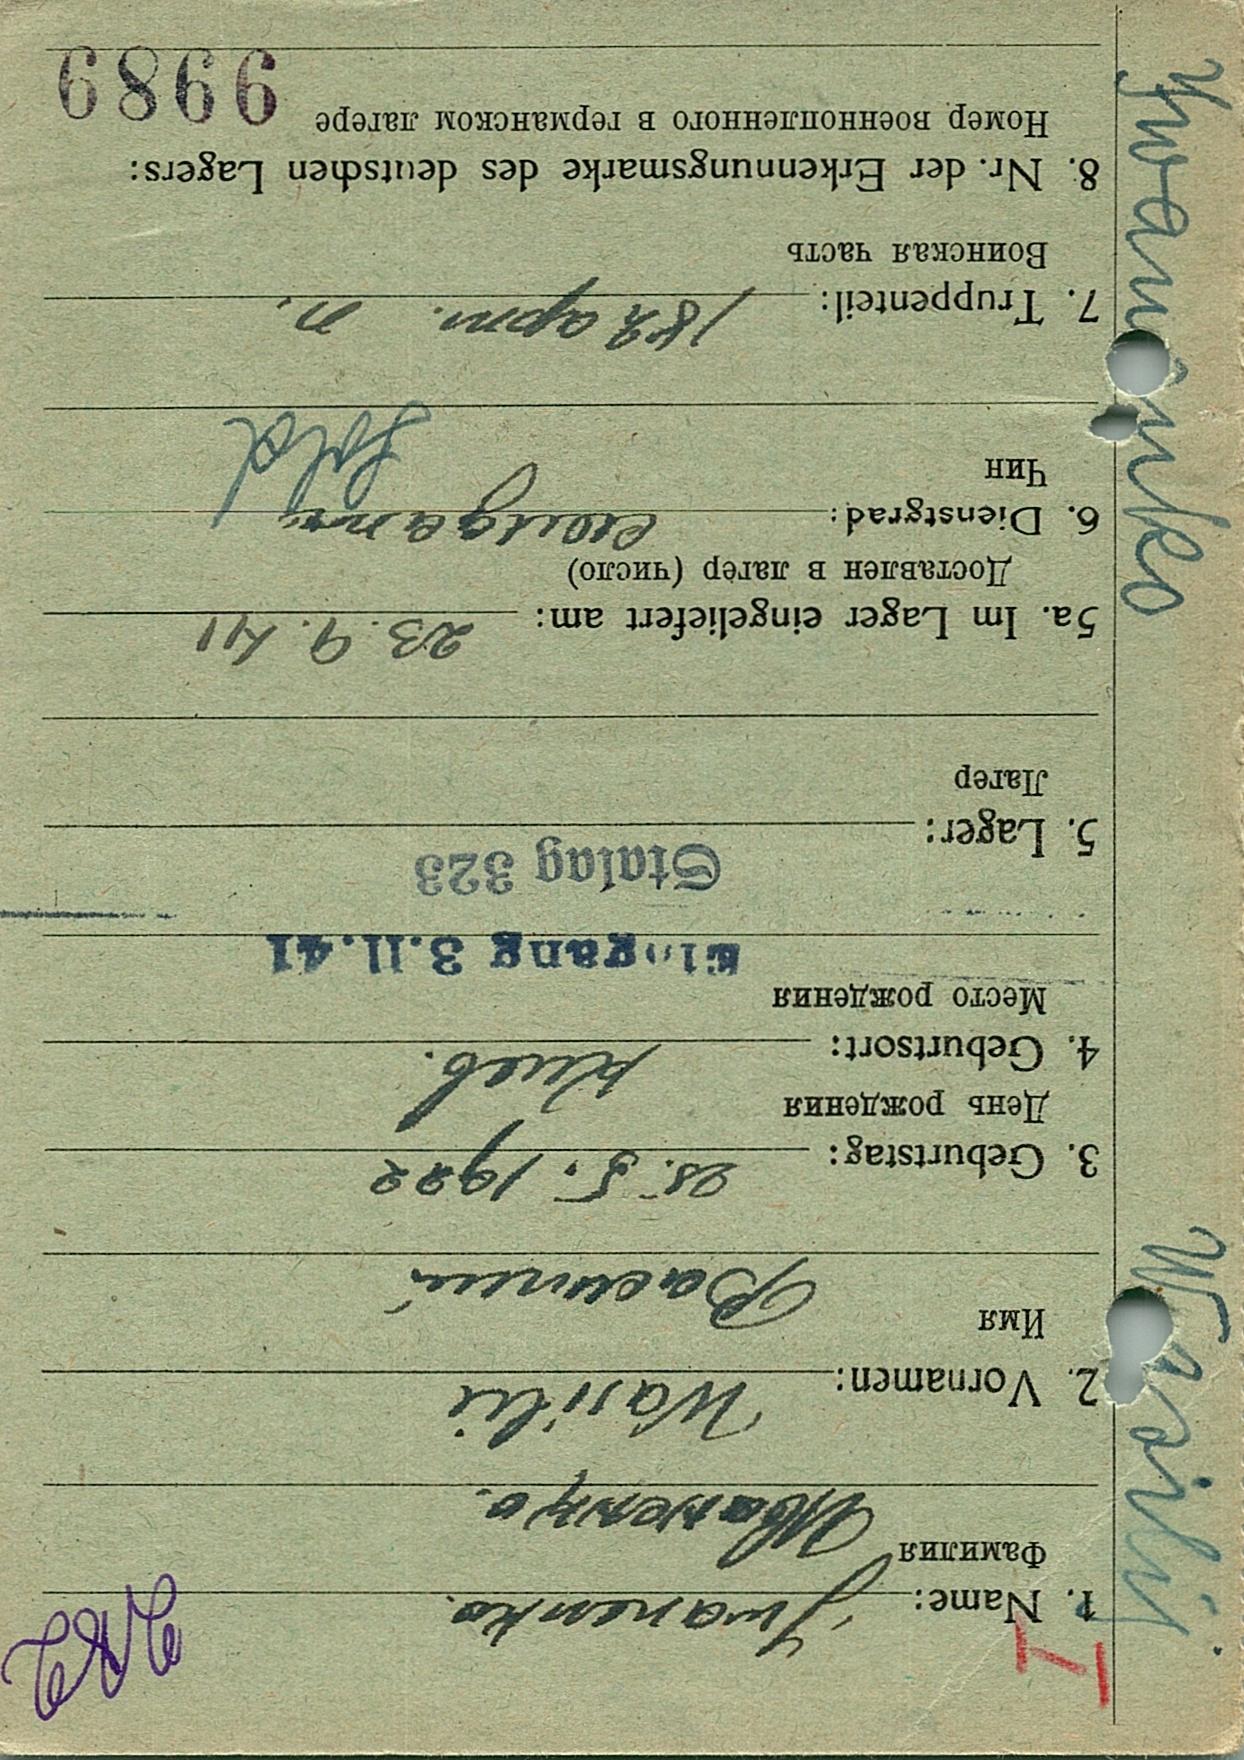 1. Name: Jwanenko.
Фамилия Иваненко.
2. Vornamen: Wasilii
Имя Василий
3. Geburtstag: 25. 5. 1922
День рождения
4. Geburtsort: Киев.
Место рождения
Eingang 3.11.41
Stalag 323
5. Lager:
Лагер
5a. Im Lager eingeliefert am: 23. 9. 41
Доставлен в лагер (число)
6. Dienstgrad: солдат
Чин Sold
7. Truppenteil: 182 арт. п.
Воинская часть
8. Nr. der Erkennungsmarke des deutschen Lagers:
Номер военнопленного в германском лагере
Wasilij